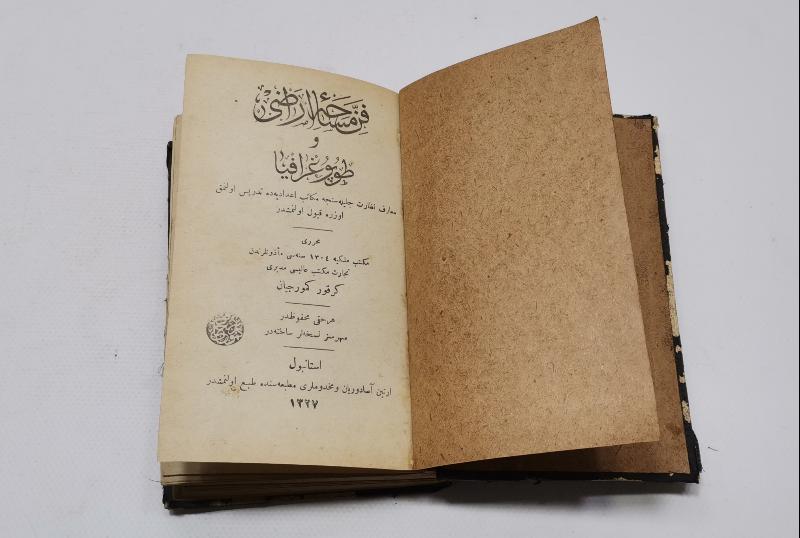 فن مساحۀ اراضی
و
طوپوغرافیا
معارف نظارت جلیله‌سنجه مکاتب اعدادیه‌ده تدریس اولنمق
اوزره قبول اولنمشدر
محرری
مکتب ملکیه ١٣٠٤ سنه‌سی مأذونلرندن
تجارت مکتب عالیسی مدیری
کرقور کمورجیان
هر حقی محفوظدر
مهرسز نسخه‌لر ساخته‌در
استانبول
ارتین آصادوریان و مخدوملری مطبعه‌سنده طبع اولنمشدر
١٣٢٧